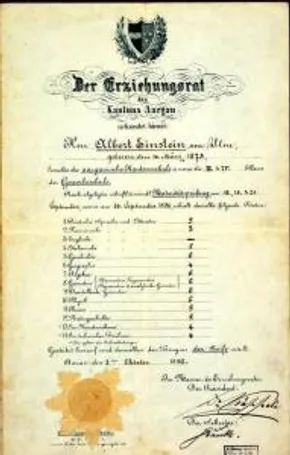 Der Erziehungsrat
des
Kantons Aargau
urkundet hiermit:
Herr Albert Einstein von Ulm,
geboren den 14. März 1879,
besuchte die aargauische Kantonsschule u. zwar die III. & IV. Klasse
der Gewerbeschule.
September, sowie am 30. September 1896 erhielt derselbe folgende Noten:
1. Deutsche Sprache und Litteratur 5
2. Französische 3
3. Englische —
4. Italienische 5
5. Geschichte 6
6. Geographie 4
7. Algebra 6
8. Geometrie 6
9. Darstellende Geometrie 6
10. Physik 6
11. Chemie 5
12. Naturgeschichte 5
13. Im Kunstzeichnen 4
14. Im technischen Zeichnen 4
Gestützt hierauf wird demselben das Zeugnis der Reife erteilt.
Aarau den 3ten Oktober 1896.
Im Namen des Erziehungsrates
Der Präsident:
Der Sekretär: